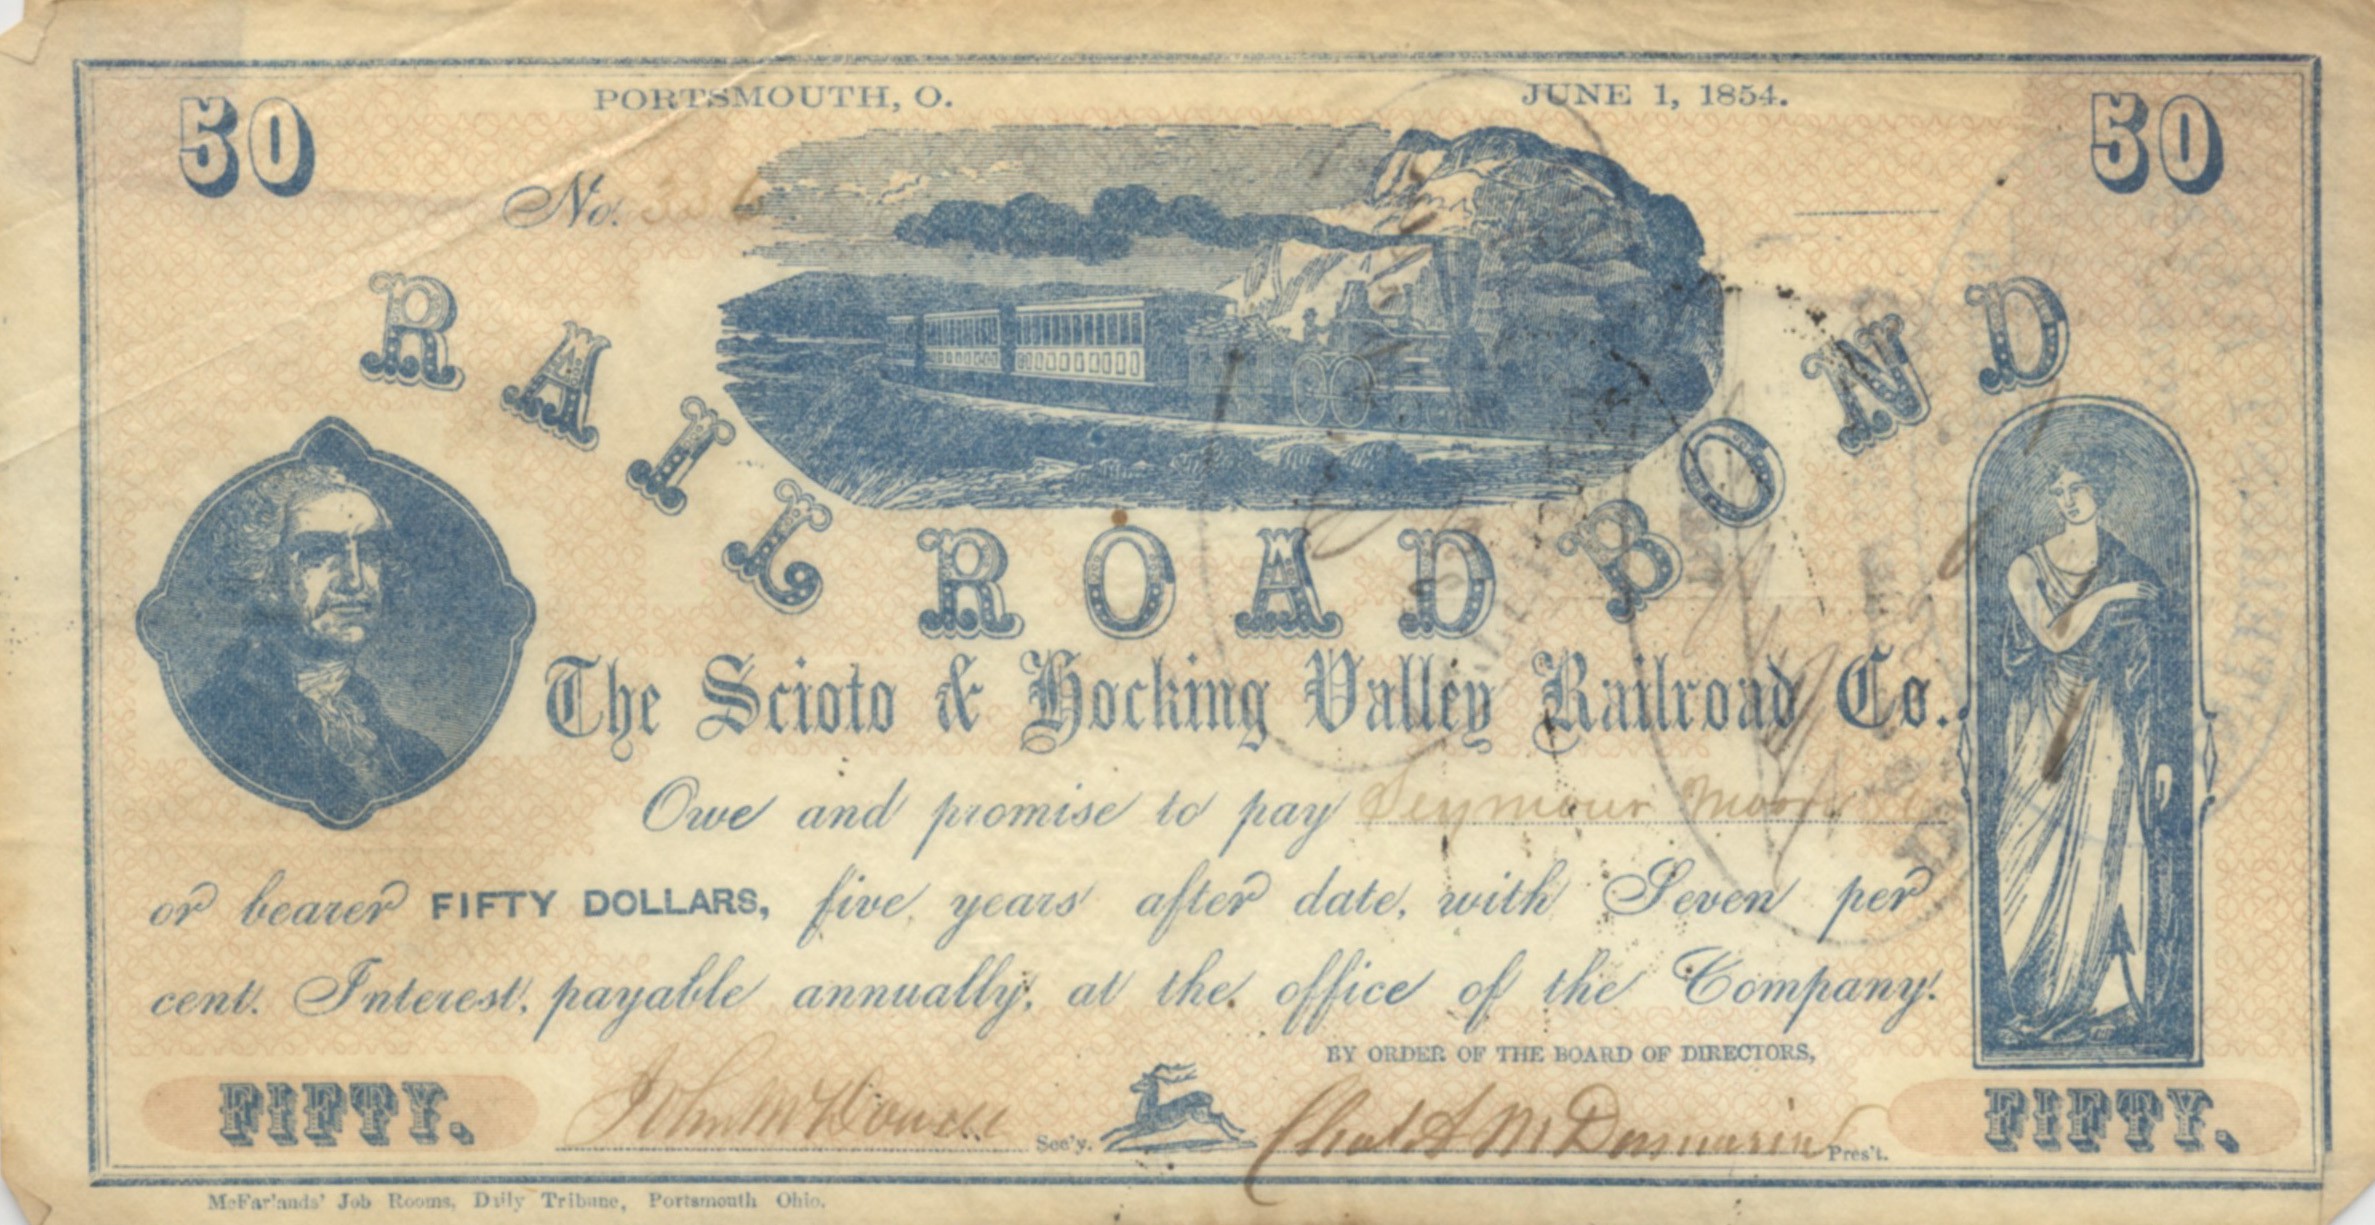 PORTSMOUTH, O. JUNE 1, 1854.
50 50
No. 336
RAILROAD BOND
The Scioto & Hocking Valley Railroad Co.
Owe and promise to pay Seymour Moore
or bearer FIFTY DOLLARS, five years after date, with Seven per
cent. Interest, payable annually, at the office of the Company.
BY ORDER OF THE BOARD OF DIRECTORS,
FIFTY. Sec'y. Pres't. FIFTY.
McFarlands' Job Rooms, Daily Tribune, Portsmouth Ohio.